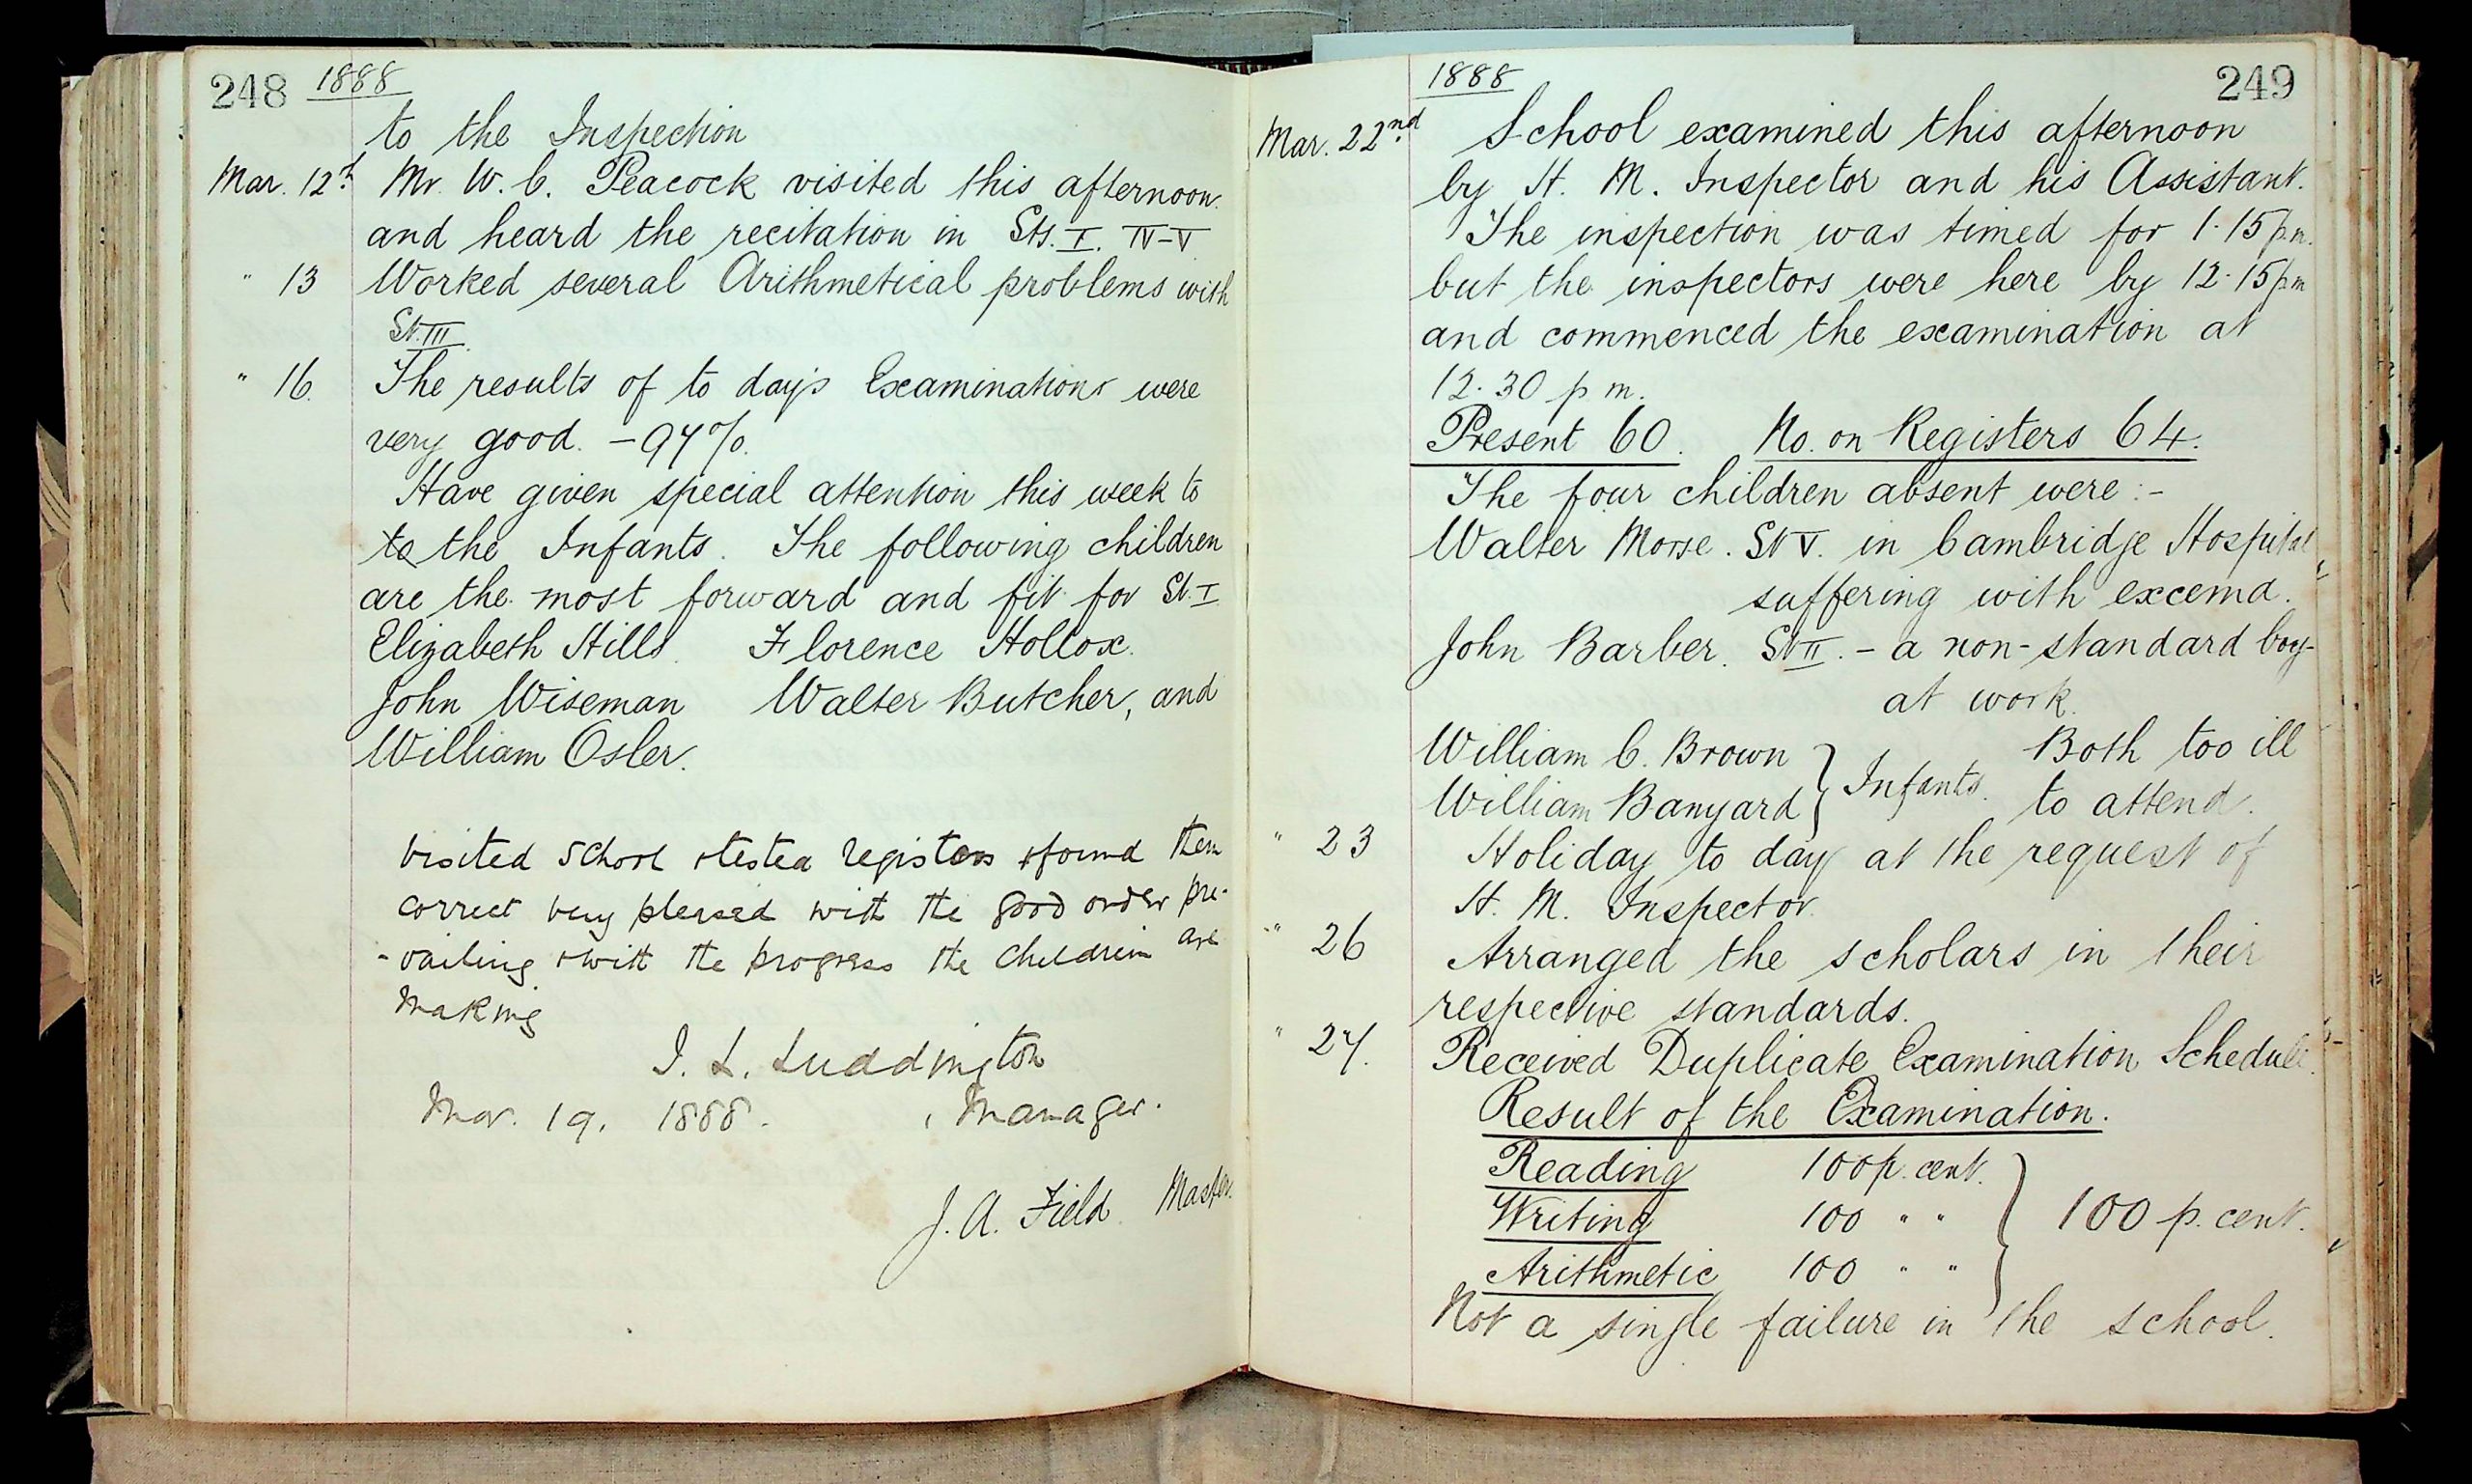 248 1888
to the Inspection
Mar. 12th Mr. W. C. Peacock visited this afternoon
and heard the recitation in Sts. I. IV-V
" 13 Worked several Arithmetical problems with
St. III
" 16. The results of to day's Examinations were
very good. - 97%.
Have given special attention this week to
to the Infants. The following children
are the most forward and fit for St. I
Elizabeth Hills. Florence Hollox.
John Wiseman Walter Butcher, and
William Osler.
Visited School & tested registers & found them
correct very pleased with the good order pre-
-vailing & with the progress the children are
making
I. L. Luddington
Mar. 19. 1888. , Manager.
J. A. Field. Master.
1888 249
Mar. 22nd School examined this afternoon
by H. M. Inspector and his Assistant.
The inspection was timed for 1.15 p.m.
but the inspectors were here by 12.15 pm
and commenced the examination at
12.30 p m.
Present 60. No. on Registers 64.
The four children absent were :-
Walter Morse. St V. in Cambridge Hospital
suffering with excema.
John Barber. St II. - a non-standard boy-
at work.
William C. Brown } Infants. Both too ill
William Banyard } to attend.
" 23 Holiday to day at the request of
H. M. Inspector.
" 26 Arranged the scholars in their
respective standards.
" 27. Received Duplicate Examination Schedule.
Result of the Examination.
Reading 100 p. cent.
Writing 100 " " } 100 p. cent.
Arithmetic 100 " "
Not a single failure in the school.